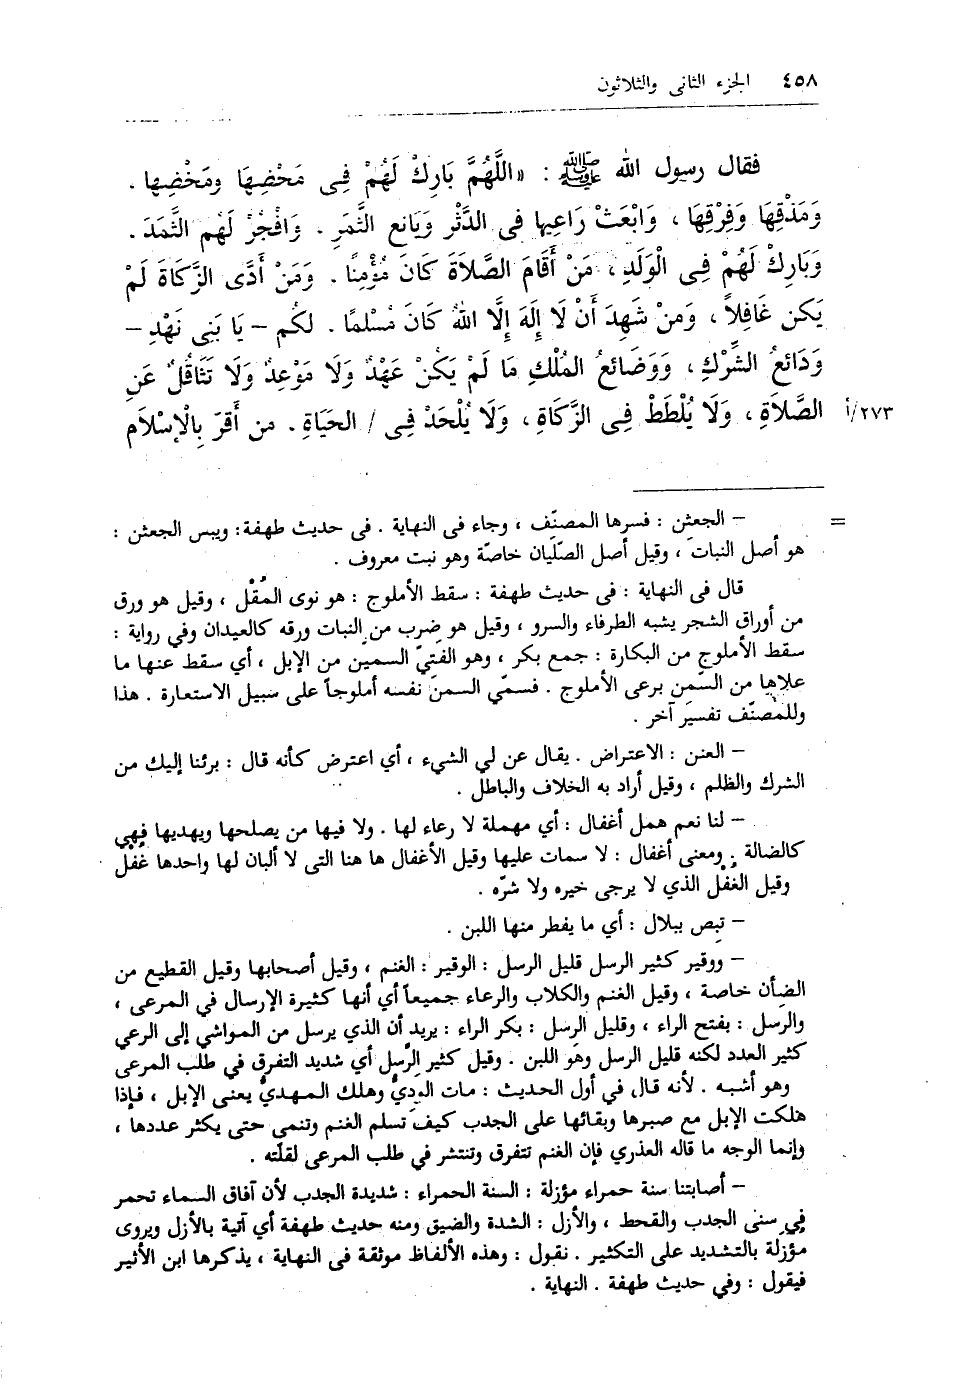 ٤٥٨ الجزء الثانى والثلاثون
فقال رسول الله ﷺ : « اللَّهُمَّ بَارِكْ لَهُمْ فِى مَحْضِهَا ومَخْضِها .
وَمَذْقِهَا وَفِرْقِهَا ، وَابْعَثْ رَاعِيها فى الدَّثْر وَيَانع الثَّمَرِ . وَافْجُرْ لَهُم الثَّمَدَ .
وَبَارِكْ لَهُمْ فِى الْوَلَدِ ، مَنْ أَقَامَ الصَّلاَةَ كَانَ مُؤْمِنًا . وَمَنْ أَدَّى الزَّكَاةَ لَمْ
يَكن غَافِلاً ، وَمنْ شَهِدَ أَنْ لَا إِلَهَ إِلَّا اللهُ كَانَ مُسْلمًا . لكُم – يَا بَنِى نَهْدٍ –
وَدَائعُ الشِّرْكِ ، وَوَضَائعُ المُلْكِ مَا لَمْ يَكُنْ عَهْدٌ وَلَا مَوْعِدٌ وَلَا تَثَاقُلٌ عَنِ
الصَّلاَةِ ، وَلَا يُلْطَطْ فِى الزَّكَاةِ ، وَلَا يُلْحَدْ فِى / الحَيَاةِ . من أَقَرّ بِالْإسْلَام ٢٧٣/أ
= – الجعثن : فسرها المصنّف ، وجاء فى النهاية . فى حديث طهفة: ويبس الجعثن :
هو أصل النبات ، وقيل أصل الصّلّيان خاصّة وهو نبت معروف .
قال فى النهاية : فى حديث طهفة : سقط الأملوج : هو نوى المُقْل ، وقيل هو ورق
من أوراق الشجر يشبه الطرفاء والسرو ، وقيل هو ضرب من النبات ورقه كالعيدان وفي رواية :
سقط الأملوج من البكارة : جمع بكر ، وهو الفتيّ السمين من الإبل ، أي سقط عنها ما
علاها من السّمن برعى الأملوج . فسمّي السمن نفسه أملوجاً على سبيل الاستعارة . هذا
وللمصنّف تفسير آخر .
– العنن : الاعتراض . يقال عن لي الشيء ، أي اعترض كأنه قال : برئنا إليك من
الشرك والظلم ، وقيل أراد به الخلاف والباطل .
– لنا نعم همل أغفال : أي مهملة لا رعاء لها . ولا فيها من يصلحها ويهديها فهي
كالضالة . ومعنى أغفال : لا سمات عليها وقيل الأغفال ها هنا التى لا ألبان لها واحدها غفل
وقيل الغفل الذي لا يرجى خيره ولا شرّه .
– تبِص ببلال : أي ما يفطر منها اللبن .
– ووقير كثير الرسل قليل الرسل : الوقير : الغنم ، وقيل أصحابها وقيل القطيع من
الضأن خاصة ، وقيل الغنم والكلاب والرعاء جميعاً أي أنها كثيرة الإرسال في المرعى ،
والرسل : بفتح الراء ، وقليل الرسل : بكر الراء : يريد أن الذي يرسل من المواشي إلى الرعي
كثير العدد لكنه قليل الرسل وهو اللبن . وقيل كثير الرَّسل أي شديد التفرق في طلب المرعى
وهو أشبه . لأنه قال في أول الحديث : مات الودِيُّ وهلك المهديُّ يعنى الإبل ، فإذا
هلكت الإبل مع صبرها وبقائها على الجدب كيف تسلم الغنم وتنمي حتى يكثر عددها ،
وإنما الوجه ما قاله العذري فإن الغنم تتفرق وتنتشر في طلب المرعى لقلّته .
– أصابتنا سنة حمراء مؤزلة : السنة الحمراء : شديدة الجدب لأن آفاق السماء تحمر
في سنى الجدب والقحط ، والأزل : الشدة والضيق ومنه حديث طهفة أي آتية بالأزل ويروى
مؤزلة بالتشديد على التكثير . نقول : وهذه الألفاظ موثقة فى النهاية ، يذكرها ابن الأثير
فيقول : وفي حديث طهفة . النهاية .